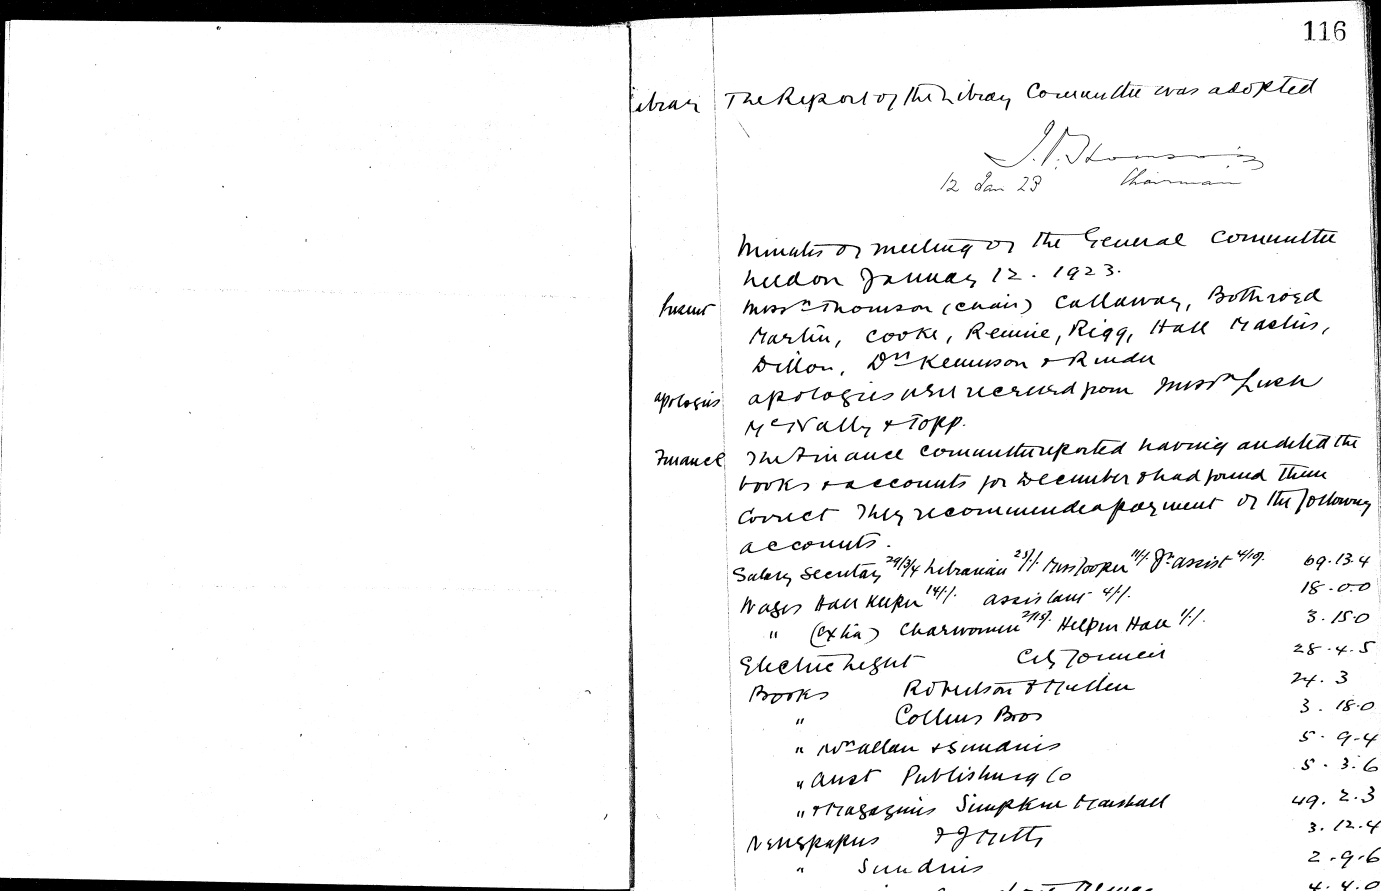 116
Library The Report of the Library Committee was adopted
12 Jan 23 Chairman
Minutes of meeting of the General Committee
held on January 12. 1923.
Present Messrs Thomson (chair) Callaway, Bothroyd
Martin, Cooke, Rennie, Rigg, Hall Martin,
Dillon, Drs &
apologies apologies were received from Messrs Lush
McNally & Topp.
Finance The Finance Committee reported having audited the
books & accounts for December & had found them
correct They recommended payment of the following
accounts.
Salary Secretary 29/3/4 Librarian 25/-/- Miss 11/-/- Jr assist 4/10/- 69.13.4
Wages Hall Keeper 14/-/- assistant 4/-/- 18.0.0
" (extra) Charwomen 2/15/- Help in Hall 1/-/- 3.15.0
Electric Light City Council 28.4.5
Books Robertson & Mullen 24.3
" Collins Bros 3.18.0
" Wm allan & Sundries 5.9.4
" aust Publishing Co 5.3.6
" & Magazines Simpkin Marshall 49.2.3
Newspapers 3.12.4
" Sundries 2.9.6
4.4.0